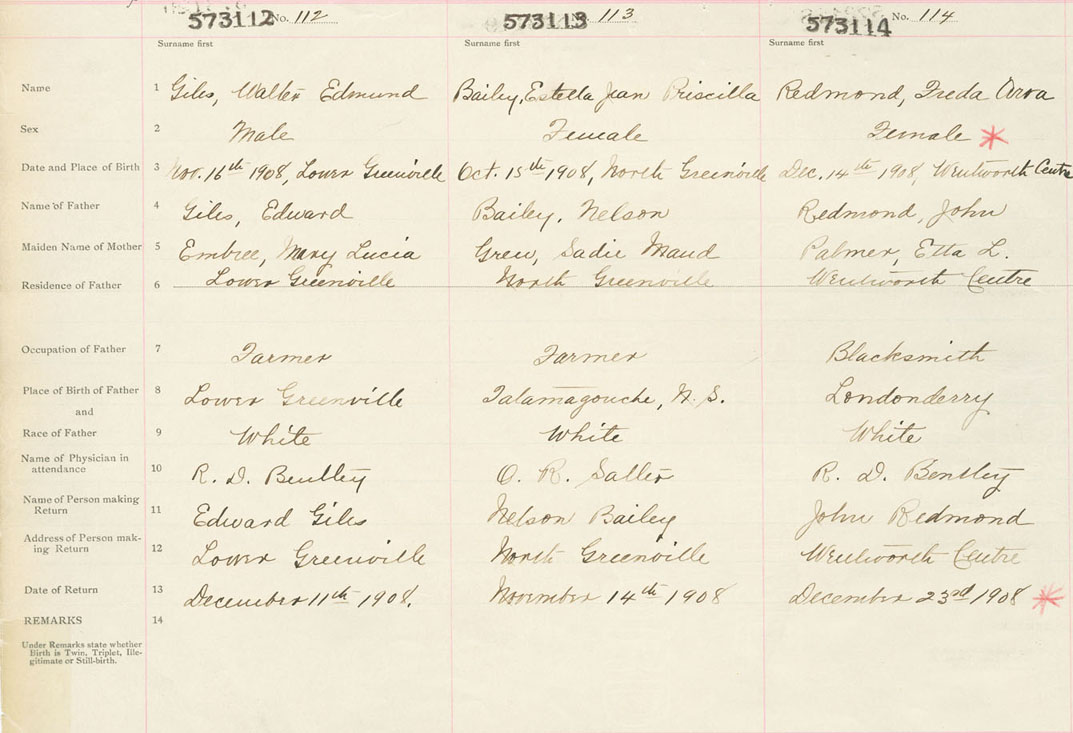 573112 No. 112 573113 No. 113 573114 No. 114
Surname first Surname first Surname first
Name 1 Giles, Walter Edmund Bailey, Estella Jean Priscilla Redmond, Freda Arva
Sex 2 Male Female Female *
Date and Place of Birth 3 Nov. 16th 1908, Lower Greenville Oct. 15th 1908, North Greenville Dec. 14th 1908, Wentworth Centre
Name of Father 4 Giles, Edward Bailey, Nelson Redmond, John
Maiden Name of Mother 5 Embree, Mary Lucia Grew, Sadie Maud Palmer, Etta L.
Residence of Father 6 Lower Greenville North Greenville Wentworth Centre
Occupation of Father 7 Farmer Farmer Blacksmith
Place of Birth of Father 8 Lower Greenville Tatamagouche, N. S. Londonderry
and
Race of Father 9 White White White
Name of Physician in
attendance 10 R. D. Bentley O. R. Salter R. D. Bentley
Name of Person making
Return 11 Edward Giles Nelson Bailey John Redmond
Address of Person mak-
ing Return 12 Lower Greenville North Greenville Wentworth Centre
Date of Return 13 December 11th 1908. November 14th 1908 December 23rd 1908 *
REMARKS 14
Under Remarks state whether
Birth is Twin, Triplet, Ille-
gitimate or Still-birth.